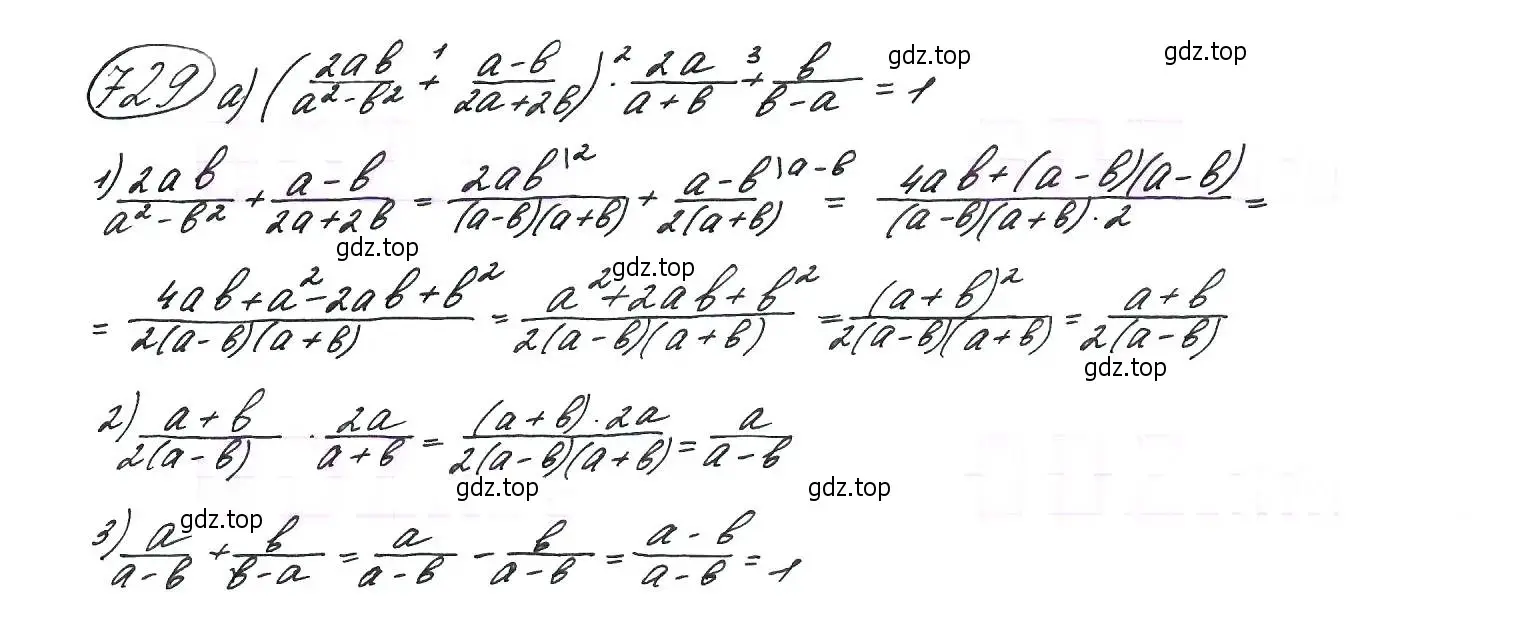 729 а) (2ab/(a²-b²) +¹ (a-b)/(2a+2b)) ·² 2a/(a+b) +³ b/(b-a) = 1
gdz.top gdz.top
1) 2ab/(a²-b²) + (a-b)/(2a+2b) = 2ab\2/((a-b)(a+b)) + (a-b)\a-b/(2(a+b)) = (4ab+(a-b)(a-b))/((a-b)(a+b)·2) =
gdz.top gdz.top
= (4ab+a²-2ab+b²)/(2(a-b)(a+b)) = (a²+2ab+b²)/(2(a-b)(a+b)) = (a+b)²/(2(a-b)(a+b)) = (a+b)/(2(a-b))
gdz.top
2) (a+b)/(2(a-b)) · 2a/(a+b) = ((a+b)·2a)/(2(a-b)(a+b)) = a/(a-b)
gdz.top gdz.top
gdz.top
3) a/(a-b) + b/(b-a) = a/(a-b) - b/(a-b) = (a-b)/(a-b) = 1